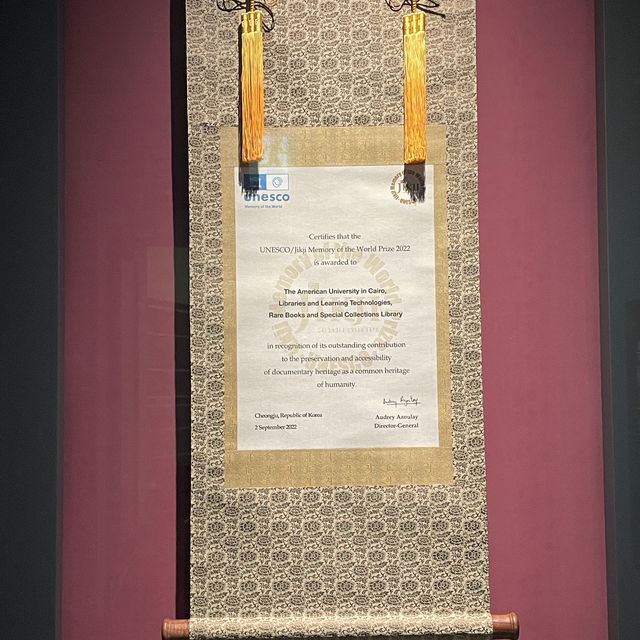 unesco
Memory of the World
Certifies that the
UNESCO/Jikji Memory of the World Prize 2022
is awarded to
The American University in Cairo,
Libraries and Learning Technologies,
Rare Books and Special Collections Library
in recognition of its outstanding contribution
to the preservation and accessibility
of documentary heritage as a common heritage
of humanity.
Cheongju, Republic of Korea
2 September 2022
Audrey Azoulay
Director-General